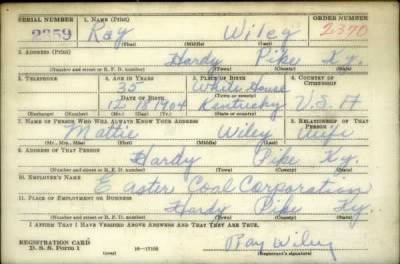 SERIAL NUMBER 1. NAME (Print) ORDER NUMBER
2359 Ray Wiley 2370
(First) (Middle) (Last)
2. ADDRESS (Print)
Hardy Pike Ky.
(Number and street or R. F. D. number) (Town) (County) (State)
3. TELEPHONE 4. AGE IN YEARS 5. PLACE OF BIRTH 6. COUNTRY OF CITIZENSHIP
35 White House
DATE OF BIRTH (Town or county)
12 18 1904 Kentucky U.S.A
(Exchange) (Number) (Mo.) (Day) (Yr.) (State or country)
7. NAME OF PERSON WHO WILL ALWAYS KNOW YOUR ADDRESS 8. RELATIONSHIP OF THAT PERSON
Mattie Wiley Wife
(Mr., Mrs., Miss) (First) (Middle) (Last)
9. ADDRESS OF THAT PERSON
Hardy Pike Ky.
(Number and street or R. F. D. number) (Town) (County) (State)
10. EMPLOYER'S NAME
Easter Coal Corporation
11. PLACE OF EMPLOYMENT OR BUSINESS
Hardy Pike Ky.
(Number and street or R. F. D. number) (Town) (County) (State)
I AFFIRM THAT I HAVE VERIFIED ABOVE ANSWERS AND THAT THEY ARE TRUE.
REGISTRATION CARD
D. S. S. Form 1 16—17105 Ray Wiley
(over) (Registrant's signature)